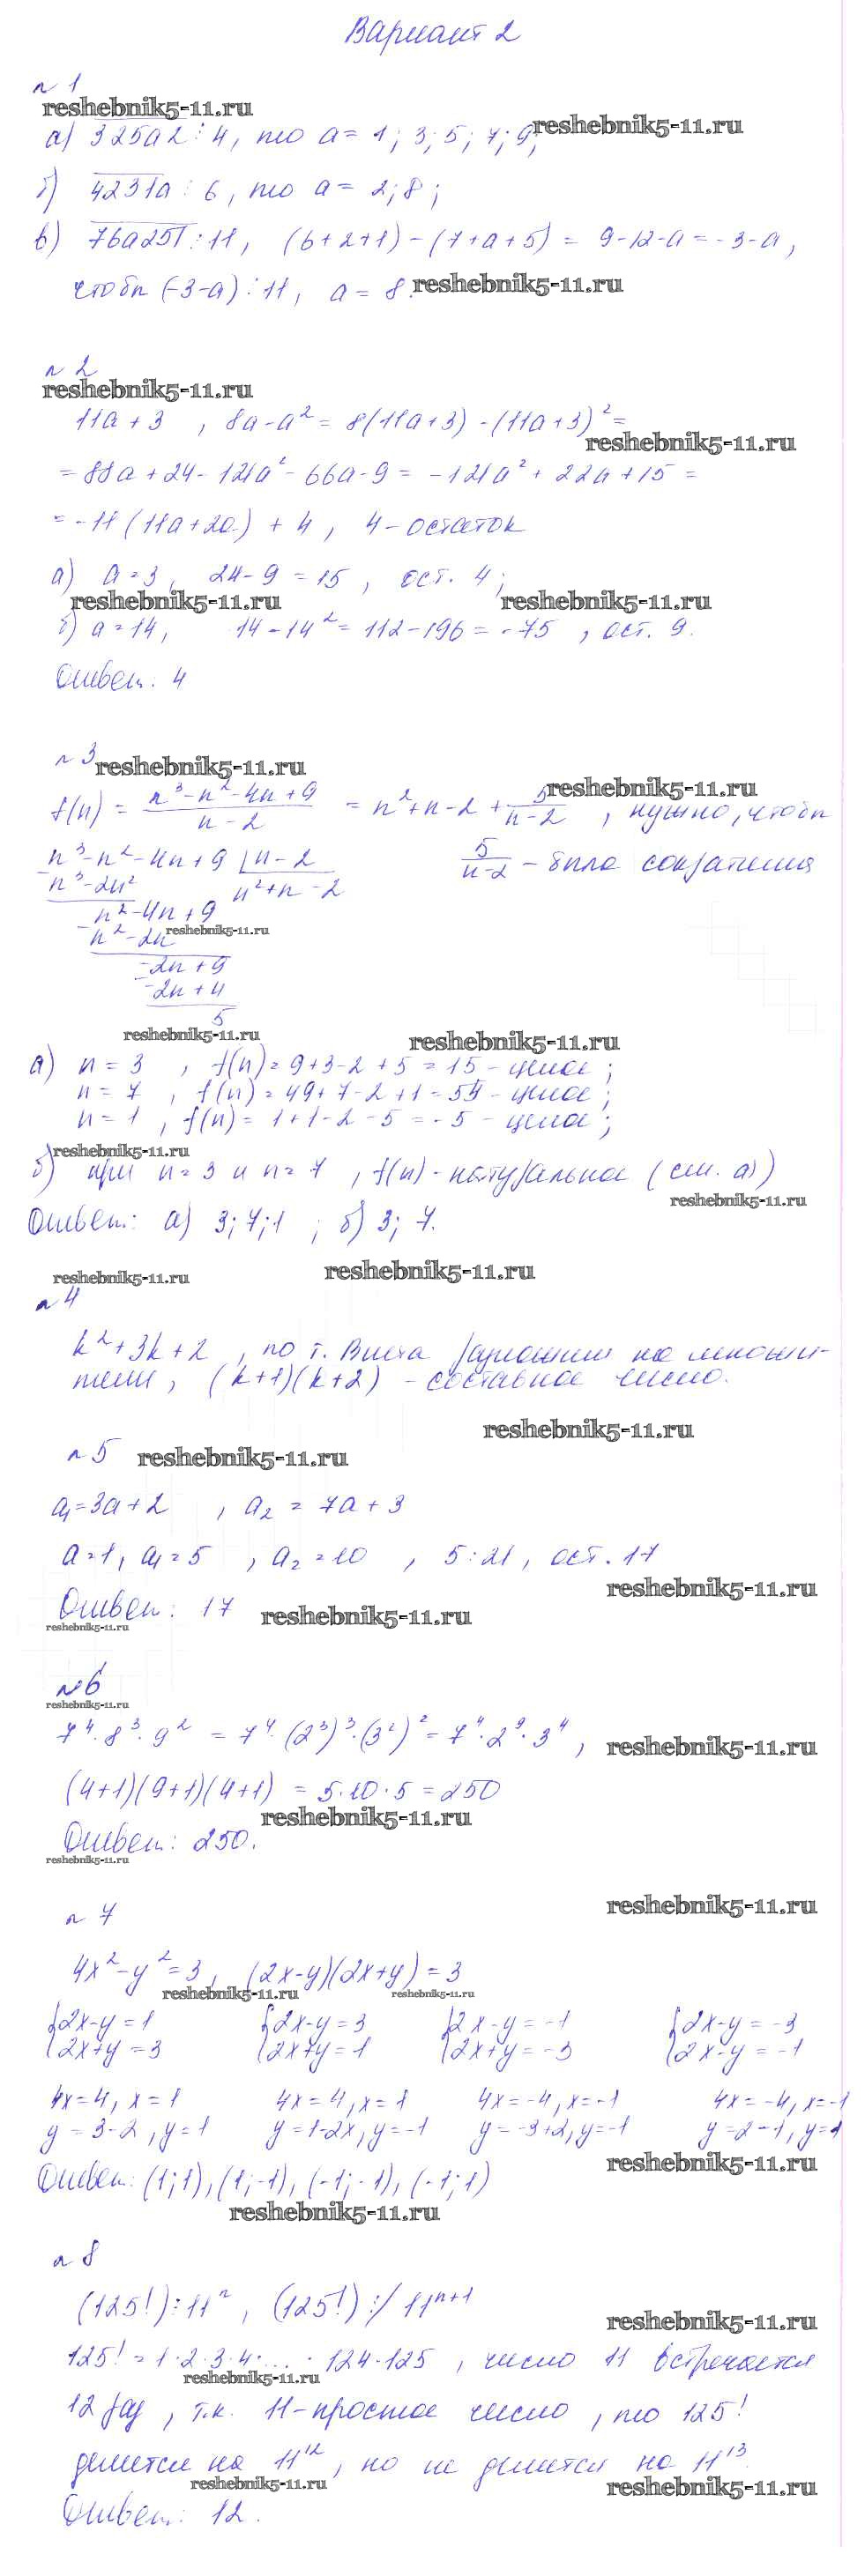 Вариант 2
№ 1
reshebnik5-11.ru
reshebnik5-11.ru
а) 325a2 ⋮ 4, то a = 1; 3; 5; 7; 9;
б) 4231a ⋮ 6, то a = 2; 8;
в) 76a251 ⋮ 11, (6+2+1) - (7+a+5) = 9-12-a = -3-a,
чтобы (-3-a) ⋮ 11, a = 8.
reshebnik5-11.ru
№ 2
reshebnik5-11.ru
11a + 3 , 8a - a² = 8(11a+3) - (11a+3)² =
reshebnik5-11.ru
= 88a + 24 - 121a² - 66a - 9 = -121a² + 22a + 15 =
= -11(11a+2a) + 4, 4 - остаток
а) a = 3, 24 - 9 = 15, ост. 4;
reshebnik5-11.ru reshebnik5-11.ru
б) a = 14, 14 - 14² = 112 - 196 = -75, ост. 9.
Ответ: 4
№ 3
reshebnik5-11.ru
reshebnik5-11.ru
f(n) = (n³ - n² - 4n + 9)/(n - 2) = n² + n - 2 + 5/(n-2), нужно, чтобы
n³ - n² - 4n + 9 | n - 2 5/(n-2) - была сократима
n³ - 2n² n² + n - 2
n² - 4n + 9
n² - 2n
reshebnik5-11.ru
-2n + 9
-2n + 4
5
reshebnik5-11.ru
reshebnik5-11.ru
а) n = 3 , f(n) = 9+3-2+5 = 15 - целое;
n = 7 , f(n) = 49+7-2+1 = 55 - целое;
n = 1 , f(n) = 1+1-2-5 = -5 - целое;
reshebnik5-11.ru
б) при n = 3 и n = 7 , f(n) - натуральное (см. а))
reshebnik5-11.ru
Ответ: а) 3; 7; 1 ; б) 3; 7.
reshebnik5-11.ru
reshebnik5-11.ru
№ 4
k² + 3k + 2 , по т. Виета разложим на множи-
тели, (k+1)(k+2) - составное число.
reshebnik5-11.ru
№ 5
reshebnik5-11.ru
a₁ = 3a + 2 , a₂ = 7a + 3
a = 1, a₁ = 5 , a₂ = 10 , 5 : 21, ост. 17
reshebnik5-11.ru
Ответ: 17
reshebnik5-11.ru
reshebnik5-11.ru
№ 6
reshebnik5-11.ru
7⁴ · 8³ · 9² = 7⁴ · (2³)³ · (3²)² = 7⁴ · 2⁹ · 3⁴,
reshebnik5-11.ru
(4+1)(9+1)(4+1) = 5·10·5 = 250
reshebnik5-11.ru
Ответ: 250.
reshebnik5-11.ru
reshebnik5-11.ru
№ 7
4x² - y² = 3, (2x-y)(2x+y) = 3
reshebnik5-11.ru reshebnik5-11.ru
{2x-y = 1 {2x-y = 3 {2x-y = -1 {2x-y = -3
2x+y = 3 2x+y = 1 2x+y = -3 2x-y = -1
4x = 4, x = 1 4x = 4, x = 1 4x = -4, x = -1 4x = -4, x = -1
y = 3-2, y = 1 y = 1-2x, y = -1 y = -3+2, y = -1 y = 2-1, y = 1
reshebnik5-11.ru
Ответ: (1; 1), (1; -1), (-1; -1), (-1; 1)
reshebnik5-11.ru
№ 8
(125!) ⋮ 11ⁿ, (125!) ⋮̸ 11ⁿ⁺¹
reshebnik5-11.ru
125! = 1·2·3·4· ... ·124·125 , число 11 встречается
reshebnik5-11.ru
12 раз, т.к. 11 - простое число, то 125!
делится на 11¹², но не делится на 11¹³.
reshebnik5-11.ru
reshebnik5-11.ru
Ответ: 12.